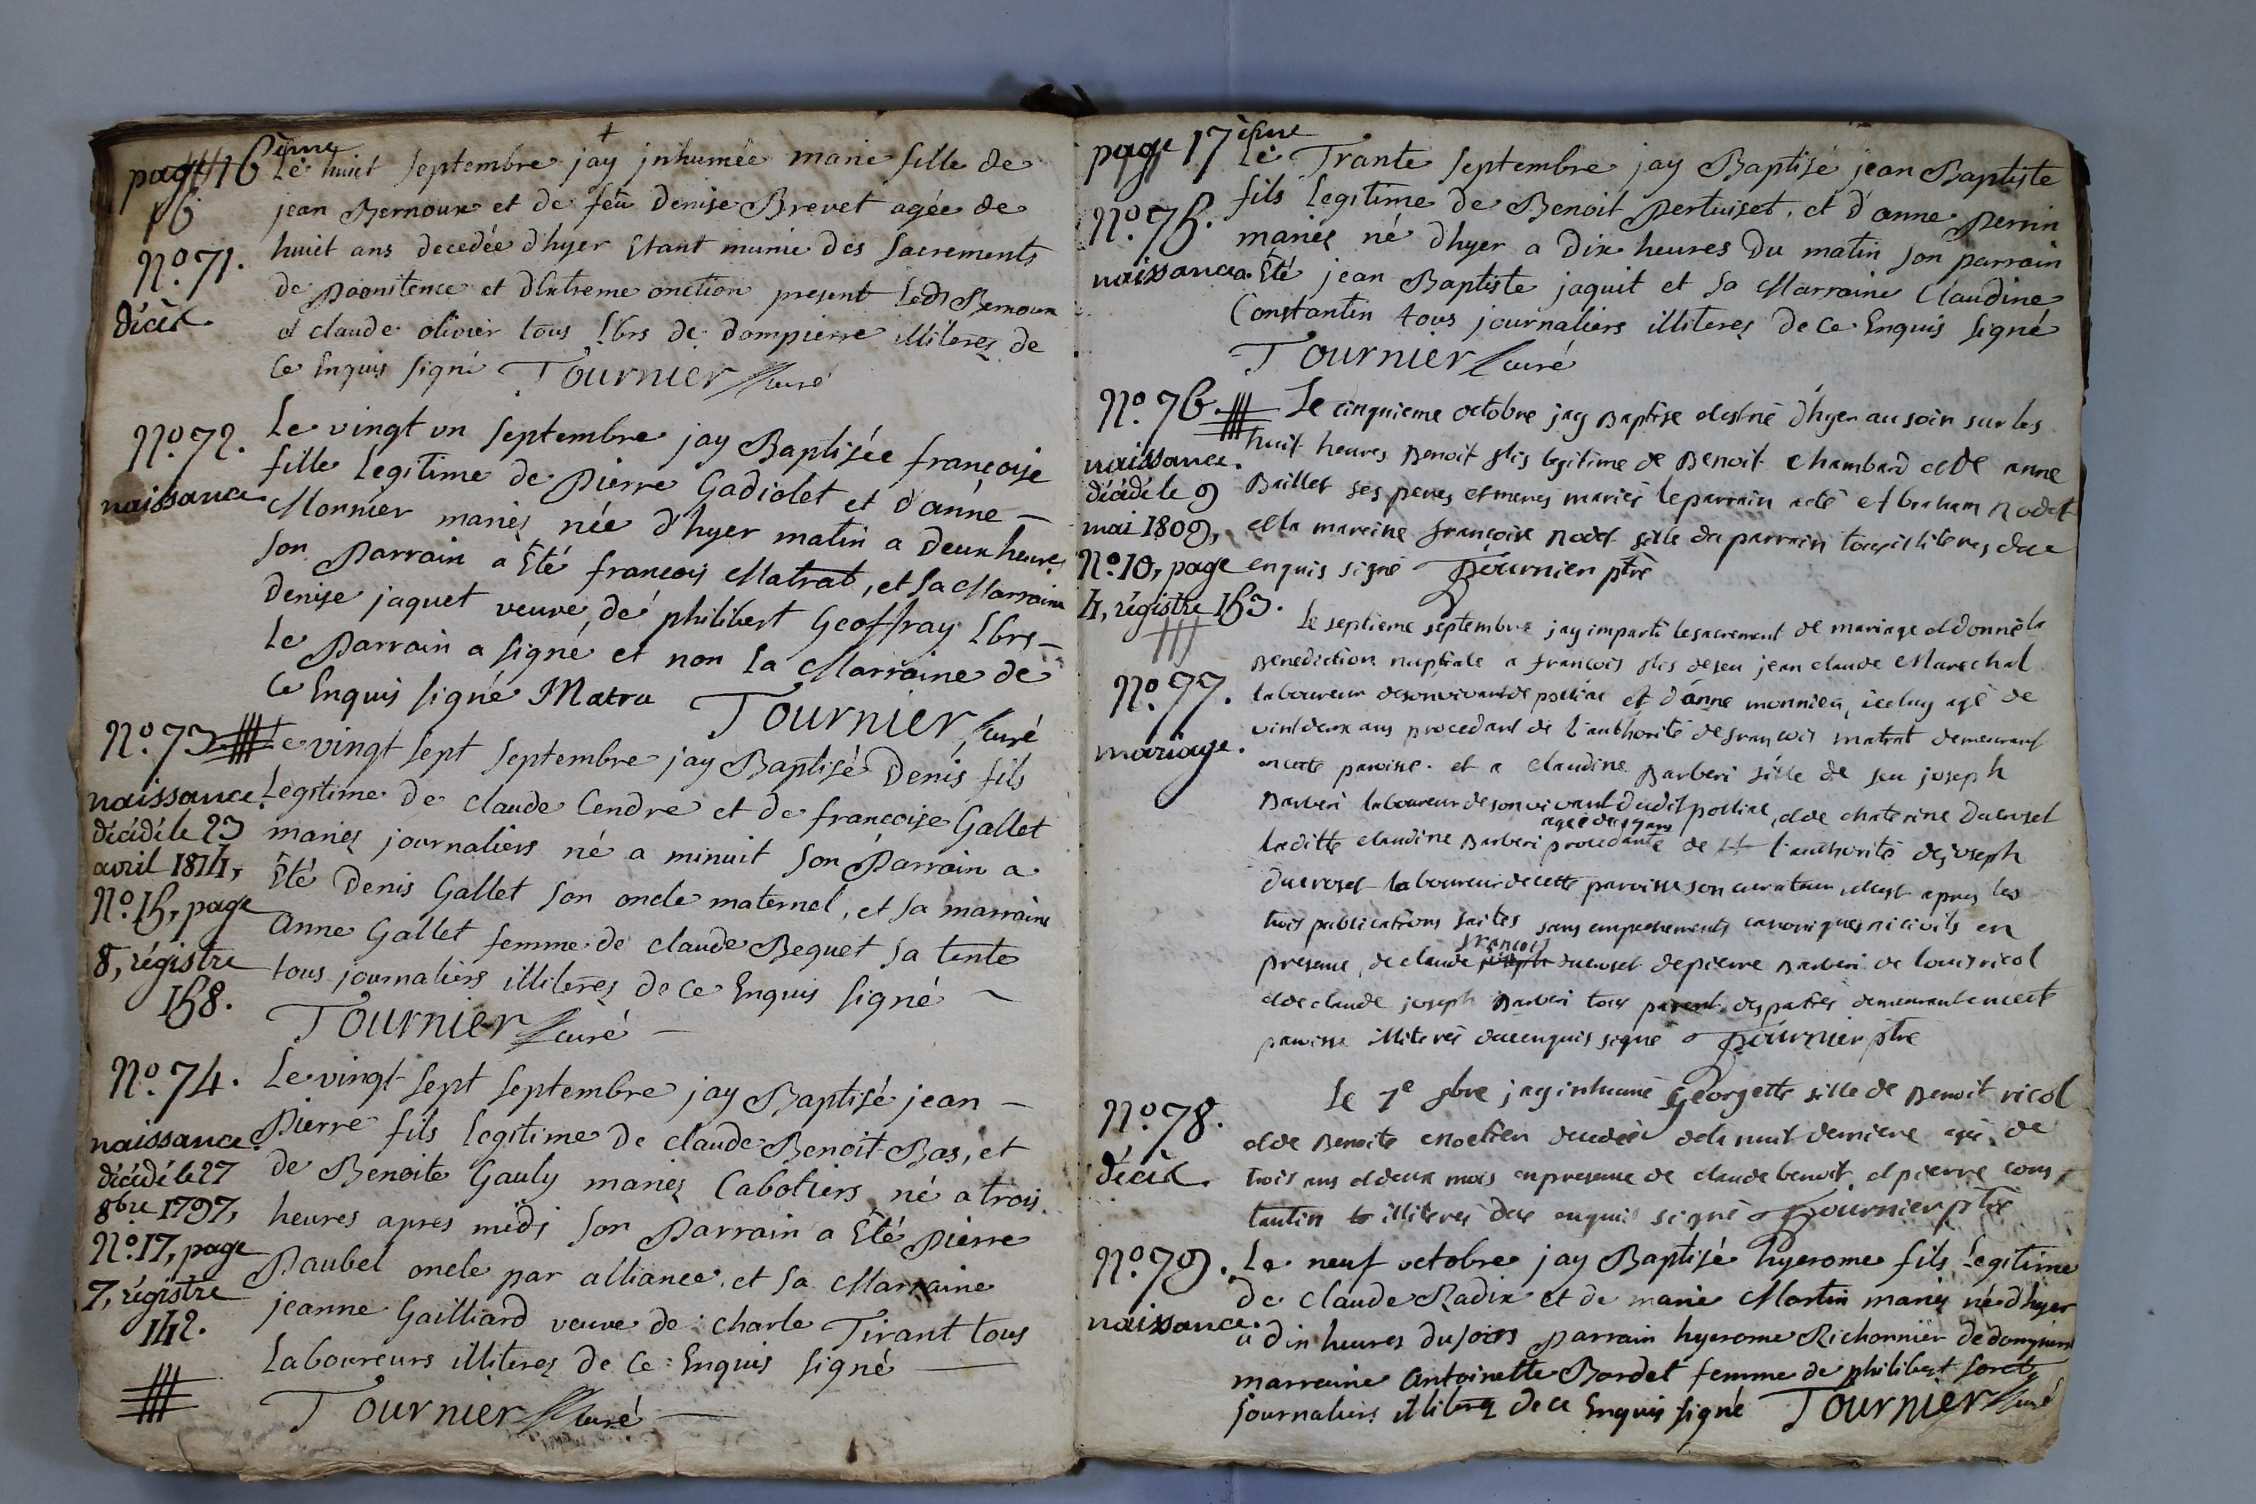 page 16ème
16
Le huict septembre jay jnhumée marie fille de
jean Bernoux et de feu Denise Brevet agée de
huict ans decedée d'hyer Etant munie des Sacrements
de Poenitence et d'Extreme onction present Ledt Bernoux
et claude olivier tous Lbrs de dompierre illiterez de
Ce Enquis Signé Tournier curé
No. 71.
décès.
Le vingt un Septembre jay Baptisée francoise
fille Legitime de Pierre Gadiolet et d'anne
Monnier mariez née d'hyer matin a Deux heures
Son Parrain a Eté francois Matrat, et Sa Marraine
Denise jaquet veuve de philibert Geoffray Lbrs
Le Parrain a Signé et non La Marraine de
Ce Enquis Signé Matra Tournier curé
No. 72.
naissance
Le vingt Sept Septembre jay Baptisé Denis fils
Legitime de Claude Cendre et de francoise Gallet
mariez journaliers né a minuit Son Parrain a
Eté Denis Gallet Son oncle maternel, et Sa marraine
Anne Gallet femme de claude Bequet Sa tente
tous journaliers illiterez de Ce Enquis Signé
Tournier curé
No. 73
naissance.
décédé le 23
avril 1814,
No. 15, page
8, régistre
158.
Le vingt Sept Septembre jay Baptisé jean
Pierre fils Legitime de claude Benoit Bas, et
de Benoite Gauly mariez Cabotiers né a trois
heures apres midi Son Parrain a Eté Pierre
Paubel oncle par alliance, et Sa Marraine
jeanne Gailliard veuve de charle Tirant tous
Laboureurs illiterez de Ce Enquis Signé
Tournier curé
No. 74.
naissance
décédé le 27
8bre 1797,
No. 17, page
7, régistre
142.
page 17ème
Le Trante Septembre jay Baptisé jean Baptiste
fils Legitime de Benoit Pertuiset, et d'anne Perrin
mariez né d'hyer a Dix heures Du matin Son parrain
a Eté jean Baptiste jaquit et Sa Marraine Claudine
Constantin tous journaliers illiterez de Ce Enquis Signé
Tournier curé
No. 75.
naissance.
Le cinquieme octobre jay Baptise et est né d'hyer au soir sur les
huit heures Benoit fils legitime de Benoit Chambard et de anne
Baillet ses peres et meres mariés le parrain a eté Abraham Nodet
et la mareine françoise Nodet fille du parrain tous illiteres de ce
enquis signé Tournier ptre
No. 76
naissance.
décédé le 9
mai 1809,
No. 10, page
4, régistre 153.
Le septieme septembre jay imparti le sacrement de mariage et donné la
Benediction nuptiale a francois fils de feu jean claude Marechal
laboureur de son vivant de polliac et d'anne monnier, iceluy agé de
vint deux ans procedant de l'authorité de francois matrat demeurant
en cette paroisse. et a claudine Barberi fille de feu joseph
Barberi laboureur de son vivant dudit polliac, et de chaterine Ducroset
agée de 19 ans
laditte claudine Barberi procedante de l'authorité de joseph
Ducroset laboureur de cette paroisse son curateur, et est apres les
trois publications faites sans empechements canoniques ni civils en
francois
presence, de claude joseph ducroset de pierre Barberi de louis ricol
et de claude joseph Barberi tous parents des parties demeurant en cette
paroisse illiteres de ce enquis signé Tournier ptre
No. 77.
mariage.
Le 7e 8bre jay inhumé Georgette fille de Benoit ricol
et de Benoite decedée de la nuit derniere agée de
trois ans et deux mois en presence de claude benoit et pierre cons
tantin illiteres de ce enquis signé Tournier ptre
No. 78.
décès.
Le neuf octobre jay Baptisé hyerome fils Legitime
de Claude Radix et de marie Martin mariez né d'hyer
a dix heures du soir parrain hyerome Richonnier de dompierre
marraine Antoinette Bordet femme de philibert foret
journaliers illiterez de ce Enquis Signé Tournier curé
No. 79.
naissance.